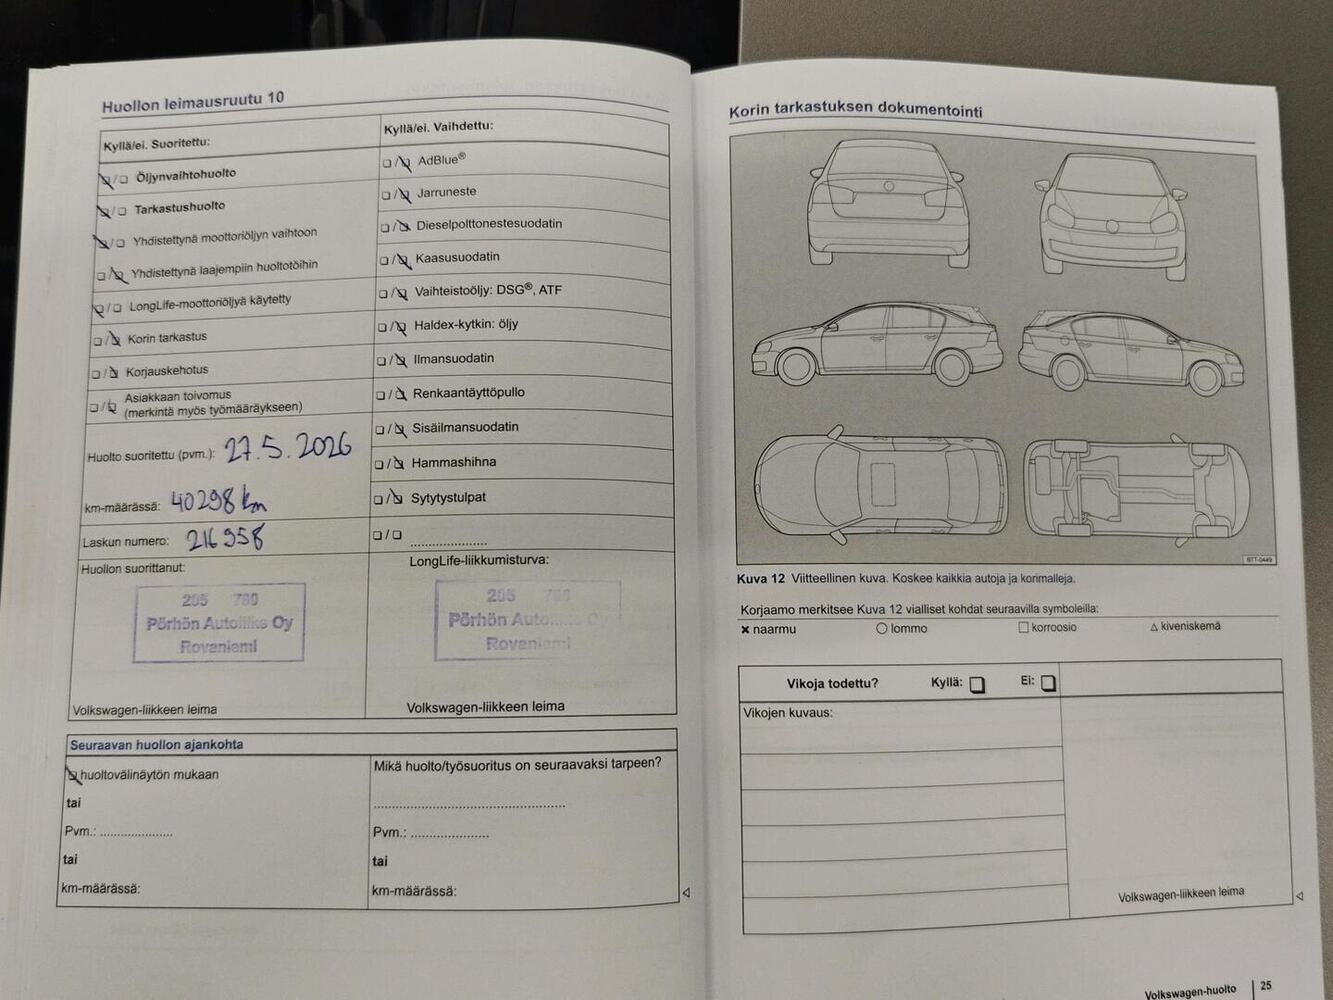 Huollon leimausruutu 10
Kyllä/ei. Suoritettu:
Öljynvaihtohuolto
Tarkastushuolto
Yhdistettynä moottoriöljyn vaihtoon
Yhdistettynä laajempiin huoltotöihin
LongLife-moottoriöljyä käytetty
Korin tarkastus
Korjauskehotus
Asiakkaan toivomus
(merkintä myös työmääräykseen)
Huolto suoritettu (pvm.): 27.5.2026
km-määrässä: 40298 km
Laskun numero: 216958
Huollon suorittanut:
205 780
Pörhön Autoliike Oy
Rovaniemi
Volkswagen-liikkeen leima
Kyllä/ei. Vaihdettu:
AdBlue®
Jarruneste
Dieselpolttonestesuodatin
Kaasusuodatin
Vaihteistoöljy: DSG®, ATF
Haldex-kytkin: öljy
Ilmansuodatin
Renkaantäyttöpullo
Sisäilmansuodatin
Hammashihna
Sytytystulpat
LongLife-liikkumisturva:
205 780
Pörhön
Rovaniemi
Volkswagen-liikkeen leima
Seuraavan huollon ajankohta
huoltovälinäytön mukaan
tai
Pvm.: ......................
tai
km-määrässä:
Mikä huolto/työsuoritus on seuraavaksi tarpeen?
Pvm.: ......................
tai
km-määrässä:
Korin tarkastuksen dokumentointi
BTT-0449
Kuva 12 Viitteellinen kuva. Koskee kaikkia autoja ja korimalleja.
Korjaamo merkitsee Kuva 12 vialliset kohdat seuraavilla symboleilla:
× naarmu ○ lommo □ korroosio △ kiveniskemä
Vikoja todettu? Kyllä: Ei:
Vikojen kuvaus:
Volkswagen-liikkeen leima
Volkswagen-huolto 25